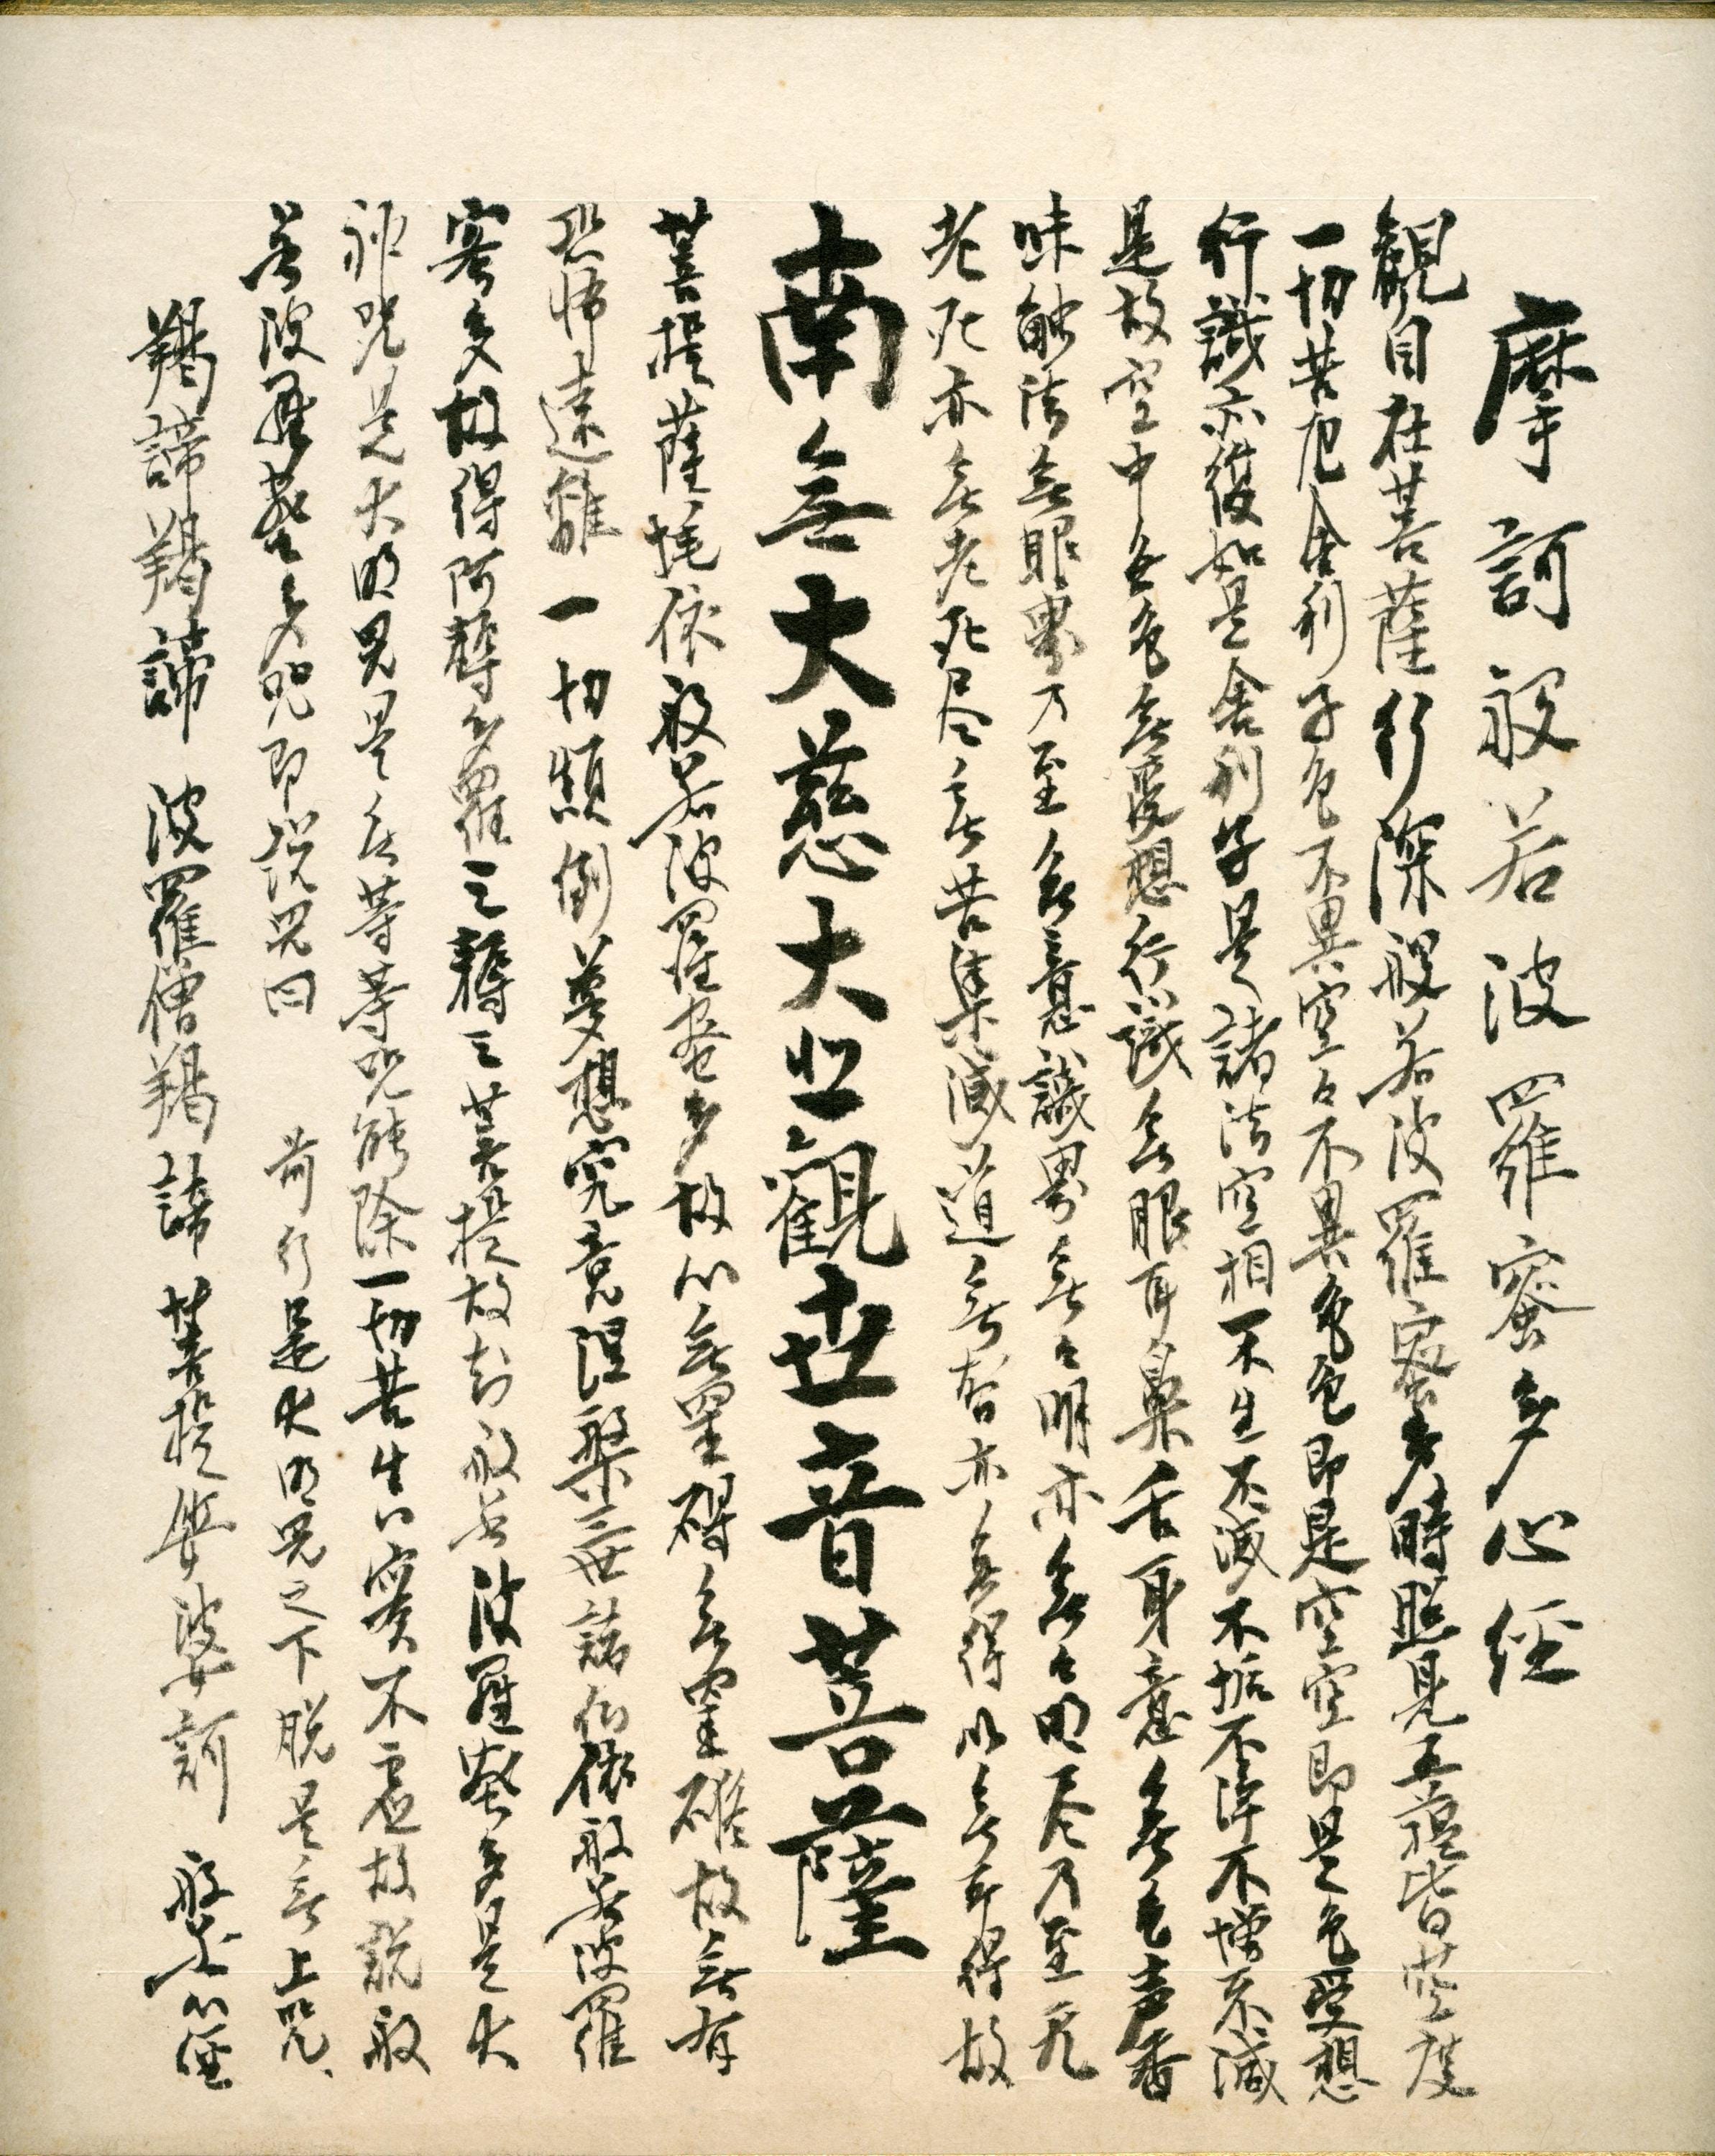 摩訶般若波羅蜜多心経
観自在菩薩行深般若波羅蜜多時照見五蘊皆空度
一切苦厄舎利子色不異空々不異色色即是空空即是色受想
行識亦復如是舎利子是諸法空相不生不滅不垢不浄不増不減
是故空中无色無受想行識無眼耳鼻舌身意無色声香
味触法無眼界乃至無意識界無々明亦無々明尽乃至无
老死亦無老死尽無苦集滅道無智亦無得以無所得故
南無大慈大悲観世音菩薩
菩提薩埵依般若波羅蜜多故心無罣碍無罣礙故無有
恐怖遠離一切顛倒夢想究竟涅槃三世諸仏依般若波羅
蜜多故得阿耨多羅三藐三菩提故知般若波羅蜜多是大
神咒是大明咒是无等等咒能除一切苦真実不虚故説般
若波羅蜜多咒即説咒曰　前行是大明咒之下脱是無上咒、
羯諦羯諦　波羅僧羯諦　菩提娑婆訶　般若心経